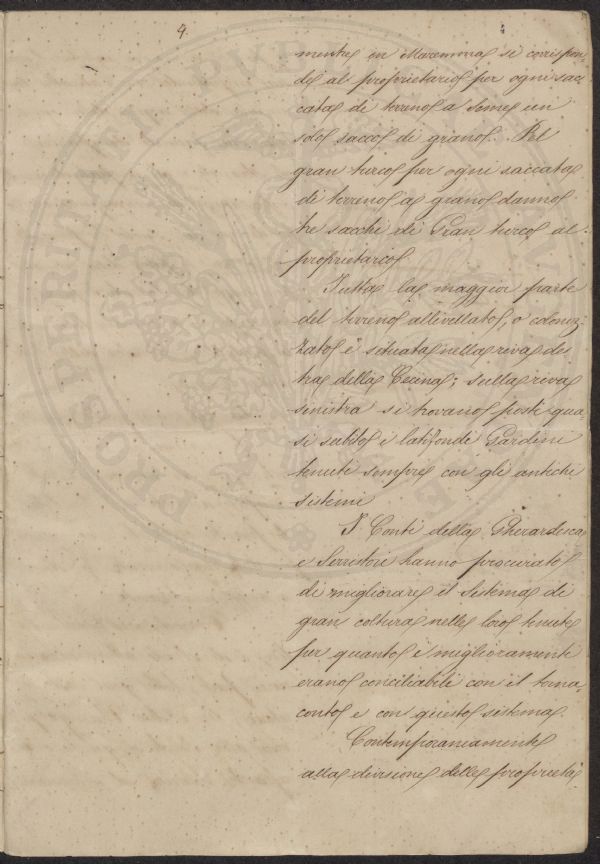 4. 4
mentre in Maremma si corrispon-
de al proprietario per ogni sac-
cata di terreno a Seme un
solo sacco di grano. Pel
gran turco per ogni saccata
di terreno a grano danno
tre sacchi di Gran turco al
proprietario
Tutta la maggior parte
del terreno allivellato, o coloniz-
zato è situata nella riva des-
tra della Cecina; sulla riva
sinistra si trovano posti qua-
si subito i latifondi
tenuti sempre con gli antichi
sistemi
I Conti della Gherardesca
e Serristori hanno procurato
di migliorare il Sistema di
gran coltura nelle loro tenute
per quanto i miglioramenti
erano conciliabili con il torna-
conto e con questo sistema.
Contemporaneamente
alla divisione delle proprietà
PROSPERITATI PVBLICAE